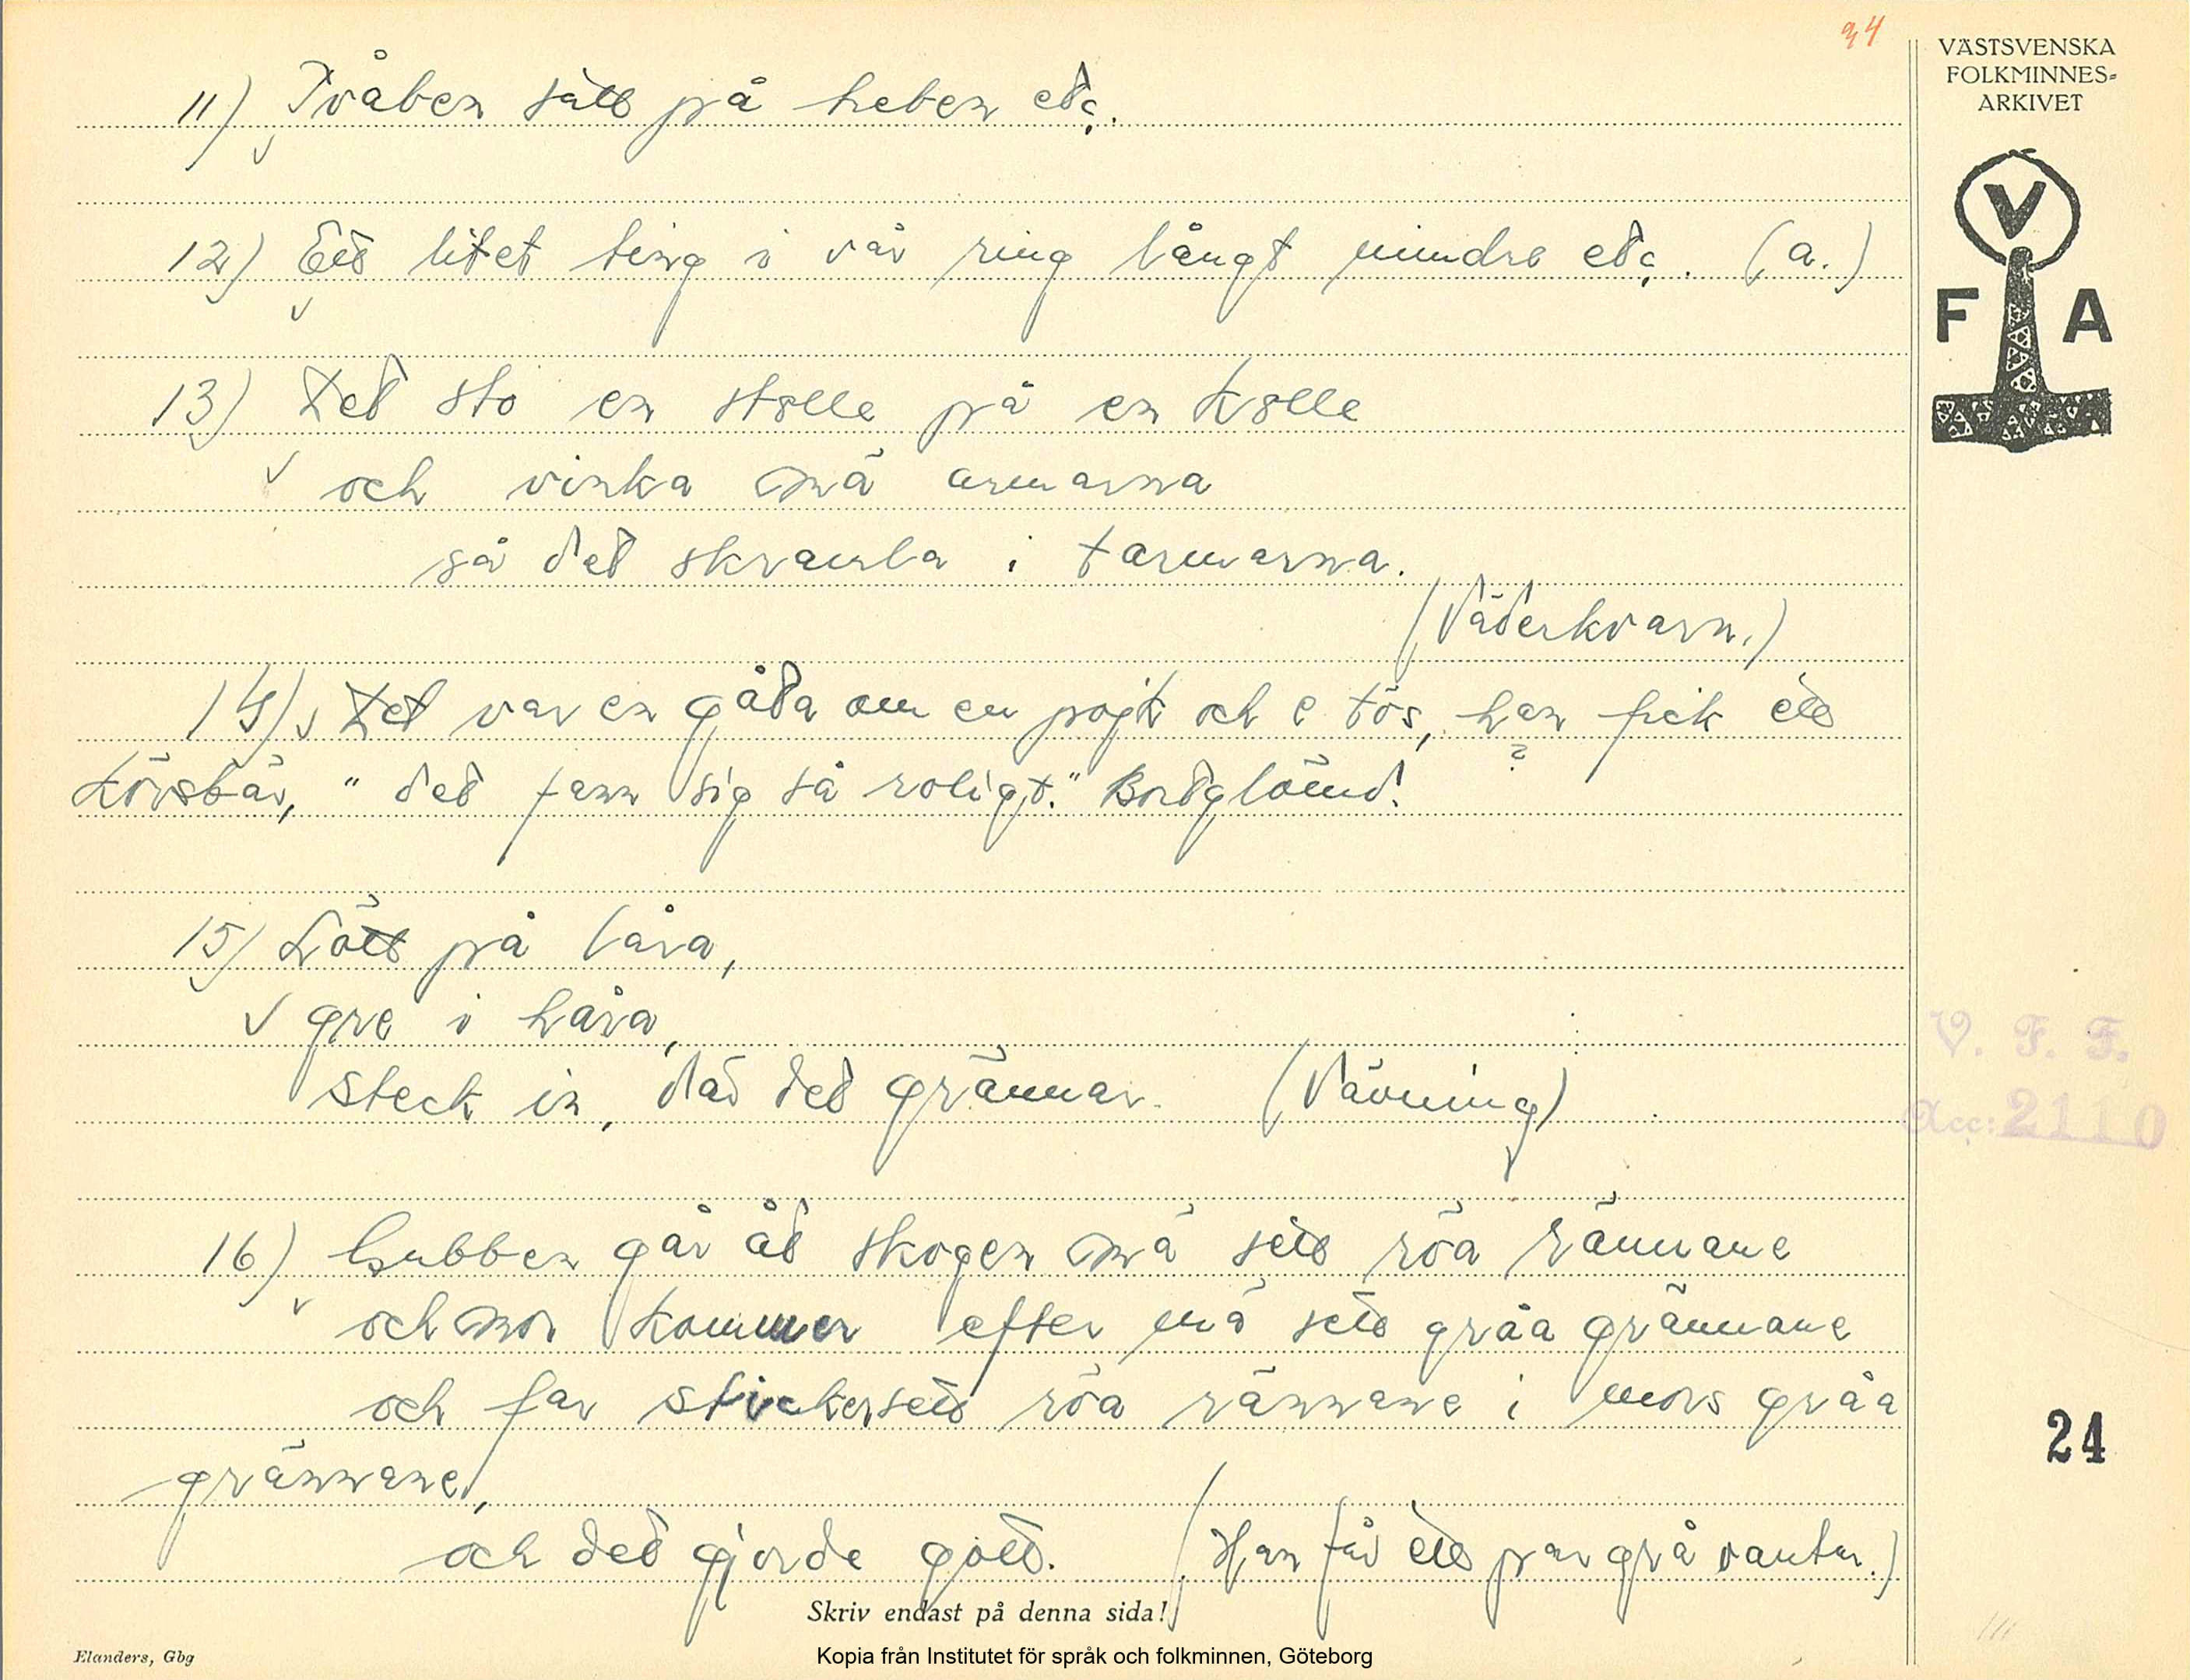 94
VÄSTSVENSKA
FOLKMINNES=
ARKIVET
V
F A
11) Tvåben satt på heben etc.
12) Ett litet ting i vår ring långt mindre etc. (a.)
13) Det sto en stolle på en kolle
och vinka mä armarna
så det skramla i tarmarna.
(Väderkvarn.)
14) Det var en gåta om en pojk och e tös, han fick ett
körsbär, "det fann sig så roligt." Bortglömd.
?
15) Sött på låra,
gre i håra,
steck in, där det grännar. (Vävning)
V. F. F.
Acc: 2110
16) Gubben går åt skogen mä sitt röa rännane
och mor kommer efter mä sitt gråa grännane
och far sticker sitt röa rännane i mors gråa
grännane,
24
och det gjorde gott. (Han får ett par grå vantar.)
Skriv endast på denna sida!
Elanders, Gbg
Kopia från Institutet för språk och folkminnen, Göteborg